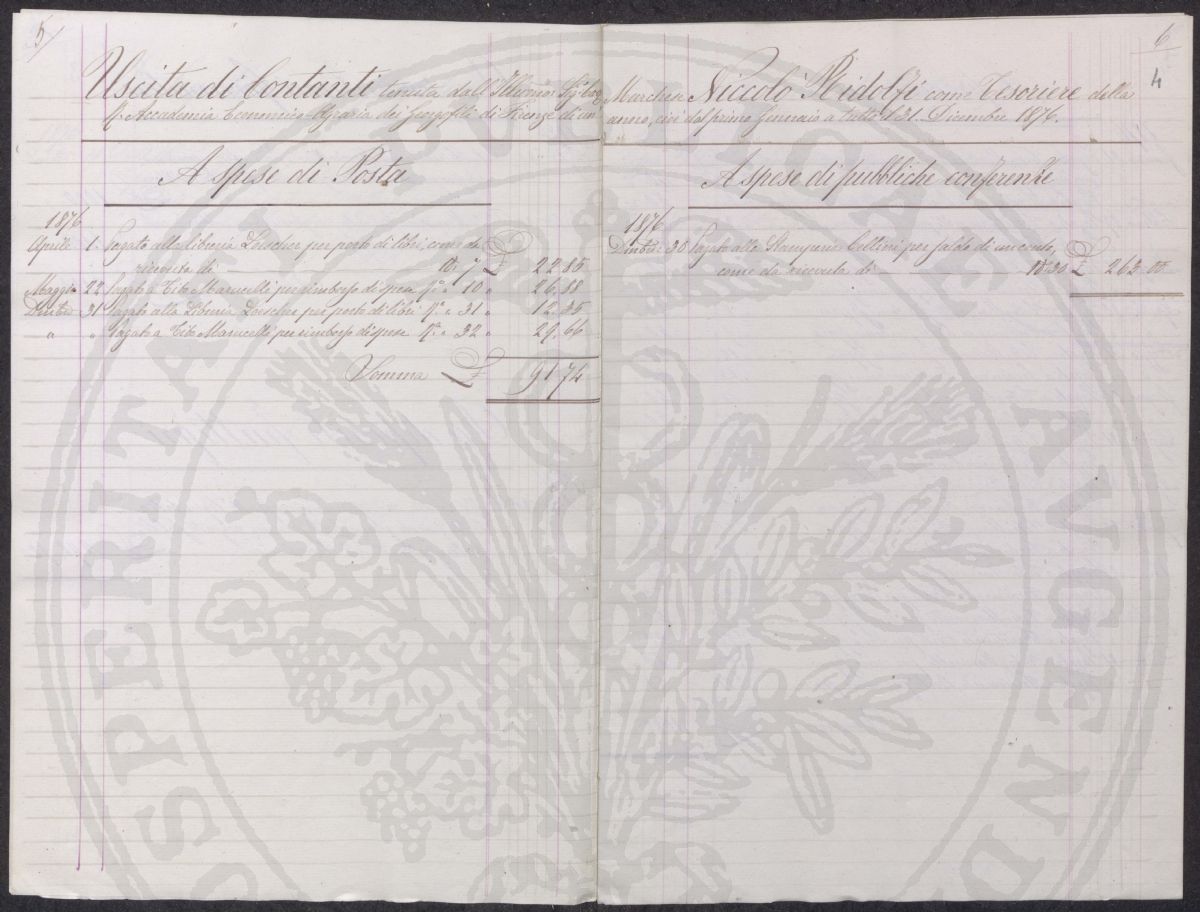 5
Uscita di Contanti tenuta dall' Illmo Sig.
R. Accademia Economico Agraria dei Georgofili di Firenze di un
A spese di Posta
1876
Aprile 1 Pagato alla libreria Loescher per porto di libri, come da
ricevuta di N. 7 £ 22 85
Maggio 22 Pagato a Tito Marucelli per rimborso di spese N. " 10 " 26.88
Dicbre 31 Pagato alla Libreria Loescher per porto di libri N. " 31 " 12.35
" " Pagato a Tito Marucelli per rimborso di spese N. " 32 " 29.66
Somma £ 91 74
6
4
Marchese Niccolò Ridolfi come Tesoriere della
anno, cioè dal primo Gennaio a tutto il 31. Dicembre 1876.
A spese di pubbliche conferenze
1876
Dicbre 30 Pagato alla Stamperia Cellini per saldo di un conto,
come da ricevuta di N. 30 £ 263.00
PROSPERITATI PUBLICAE AVGENDAE